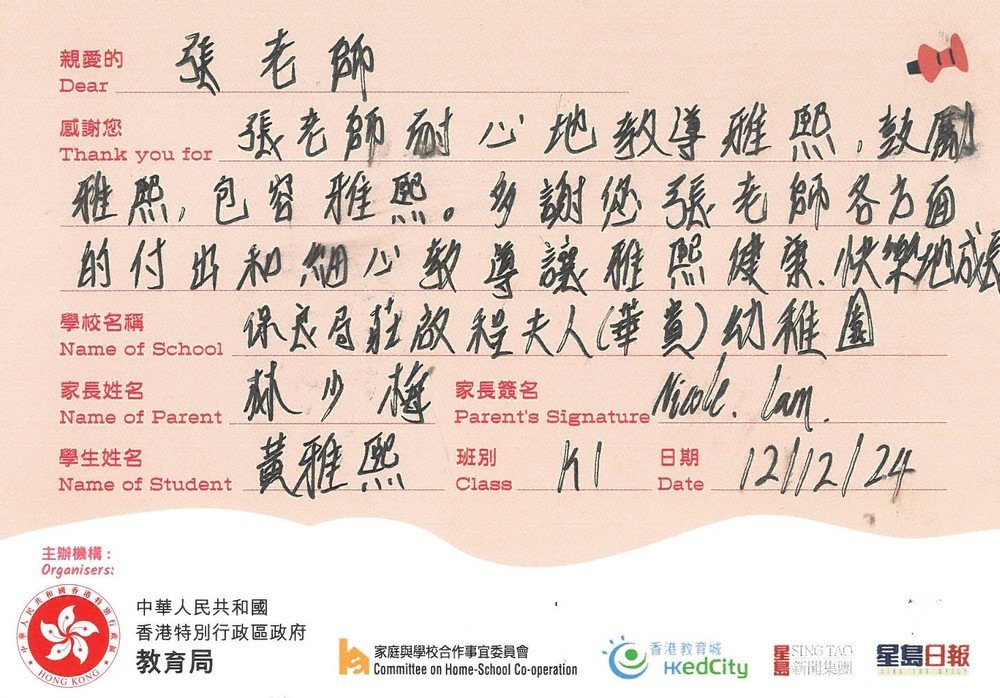 親愛的
Dear 張老師
感謝您
Thank you for 張老師耐心地教導雅熙,鼓勵
雅熙,包容雅熙。多謝您張老師各方面
的付出和細心教導讓雅熙健康、快樂地成長
學校名稱
Name of School 保良局莊啟程夫人(華貴)幼稚園
家長姓名 家長簽名
Name of Parent 林少梅 Parent's Signature Nicole. Lam.
學生姓名 班別 日期
Name of Student 黃雅熙 Class K1 Date 12/12/24
主辦機構:
Organisers:
中華人民共和國香港特別行政區
HONG KONG
中華人民共和國
香港特別行政區政府
教育局
家庭與學校合作事宜委員會
Committee on Home-School Co-operation
香港教育城
HKedCity
星島 SING TAO
新聞集團
星島日報
SING TAO DAILY